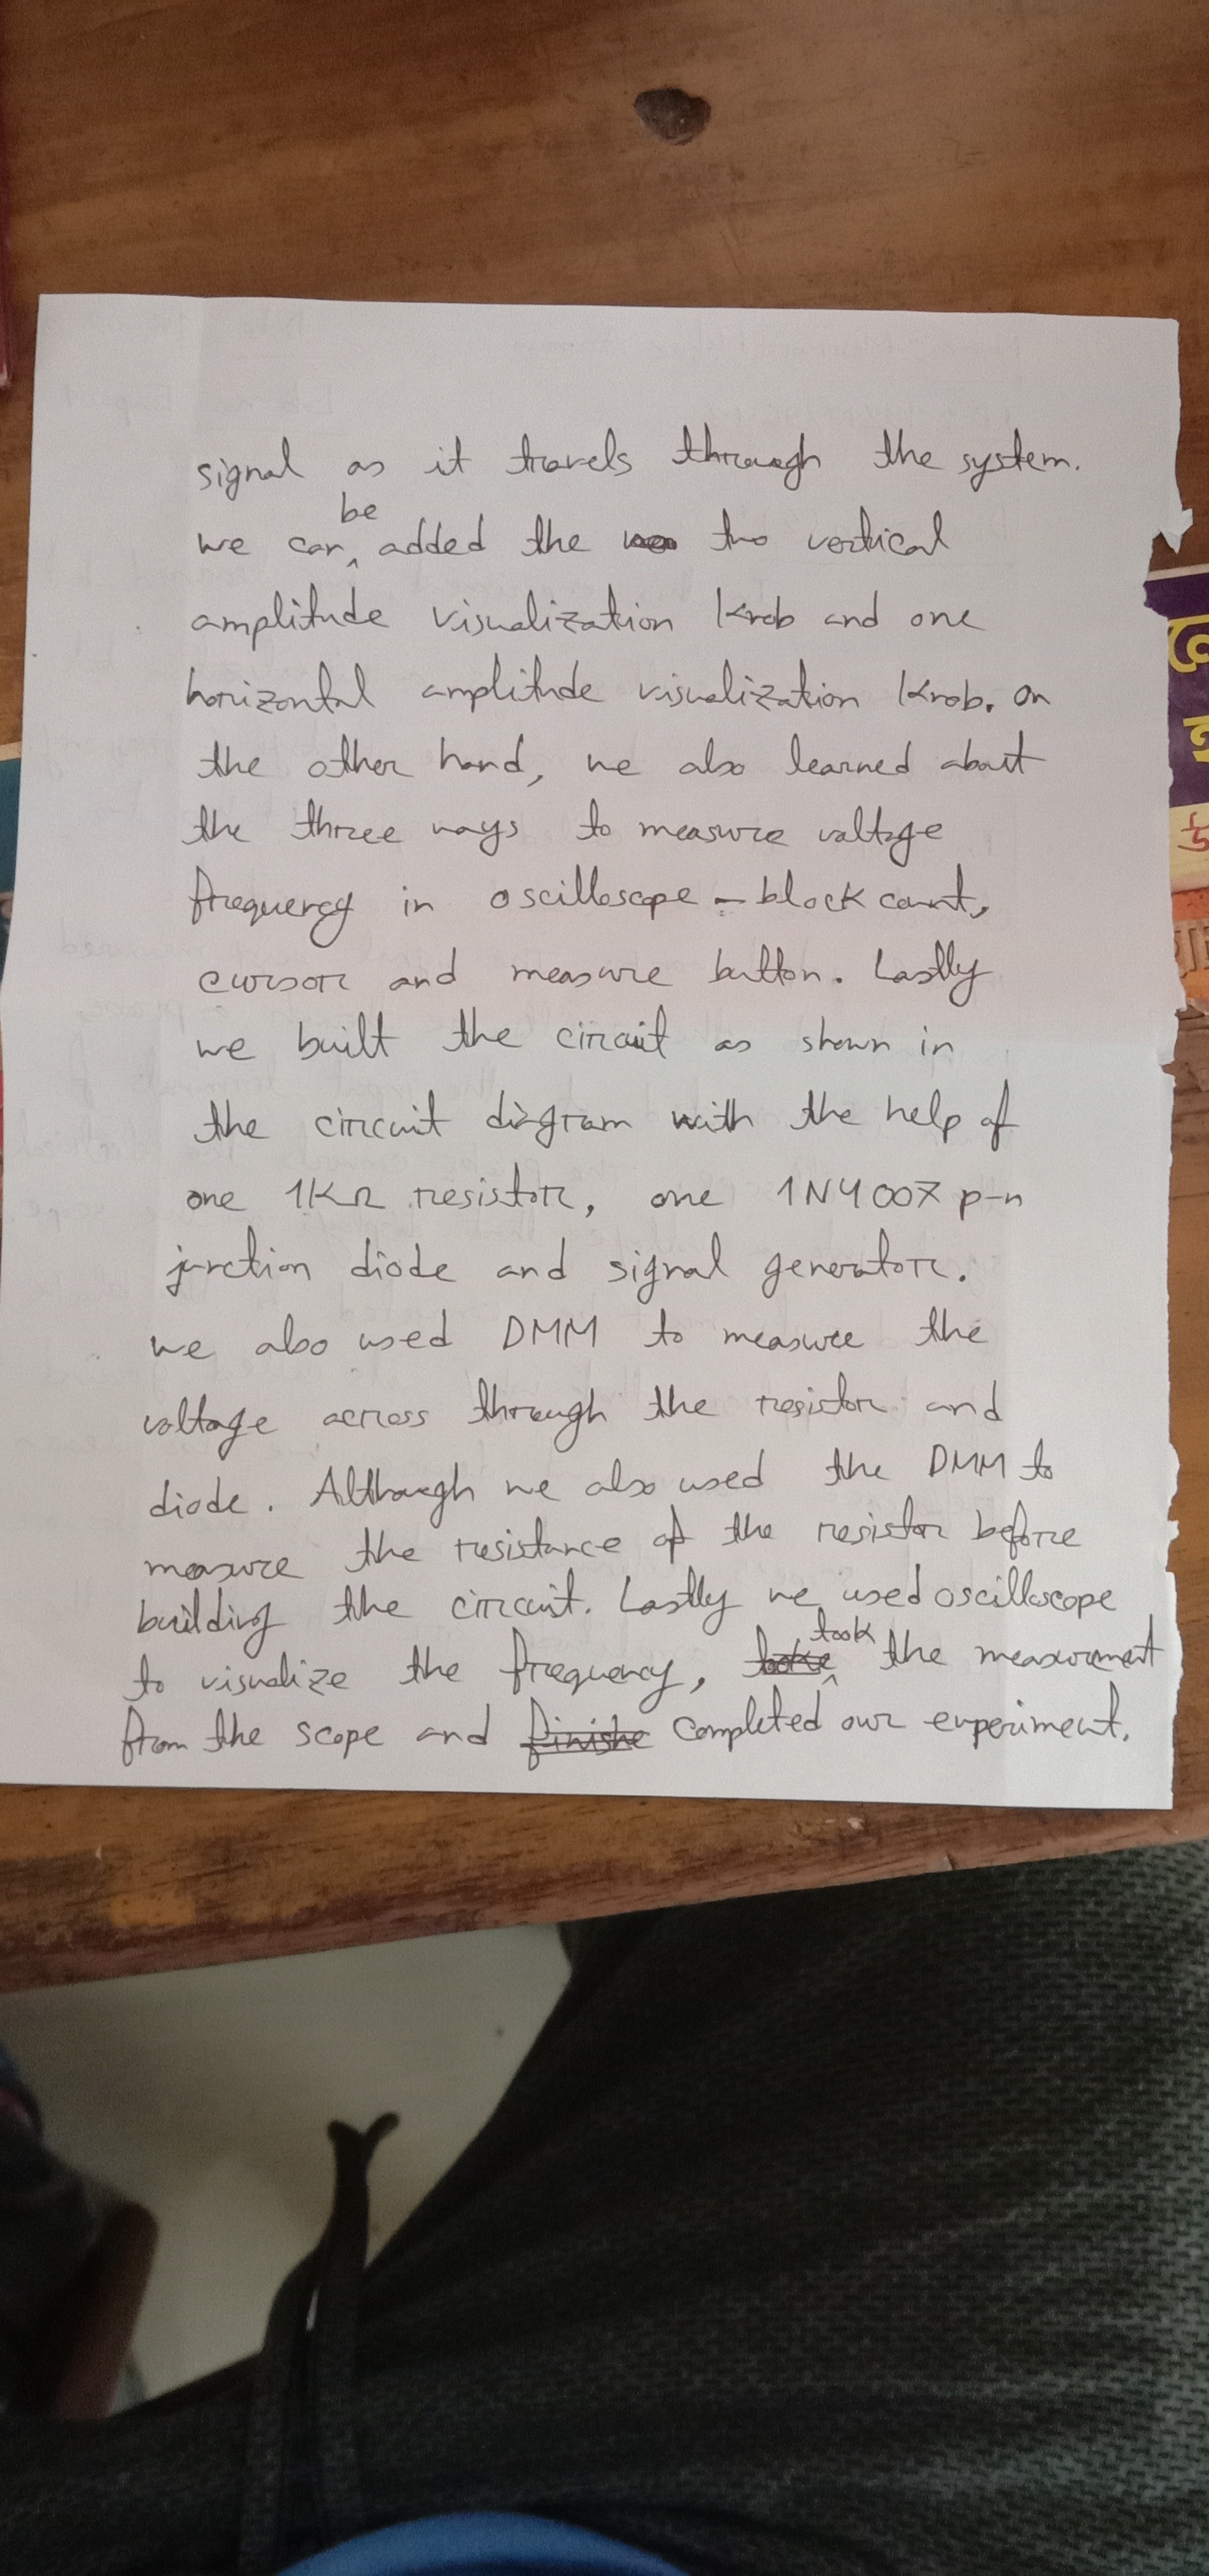 signal as it travels through the system.
we can be added the two vertical
amplitude visualization Knob and one
horizontal amplitude visualization Knob. On
the other hand, we also learned about
the three ways to measure voltage
frequency in oscilloscope - block count,
cursor and measure button. Lastly
we built the circuit as shown in
the circuit diagram with the help of
one 1KΩ resistor, one 1N4007 p-n
junction diode and signal generator.
we also used DMM to measure the
voltage across through the resistor and
diode. Although we also used the DMM to
measure the resistance of the resistor before
building the circuit. Lastly we used oscilloscope
to visualize the frequency, took the measurment
from the scope and completed our experiment.